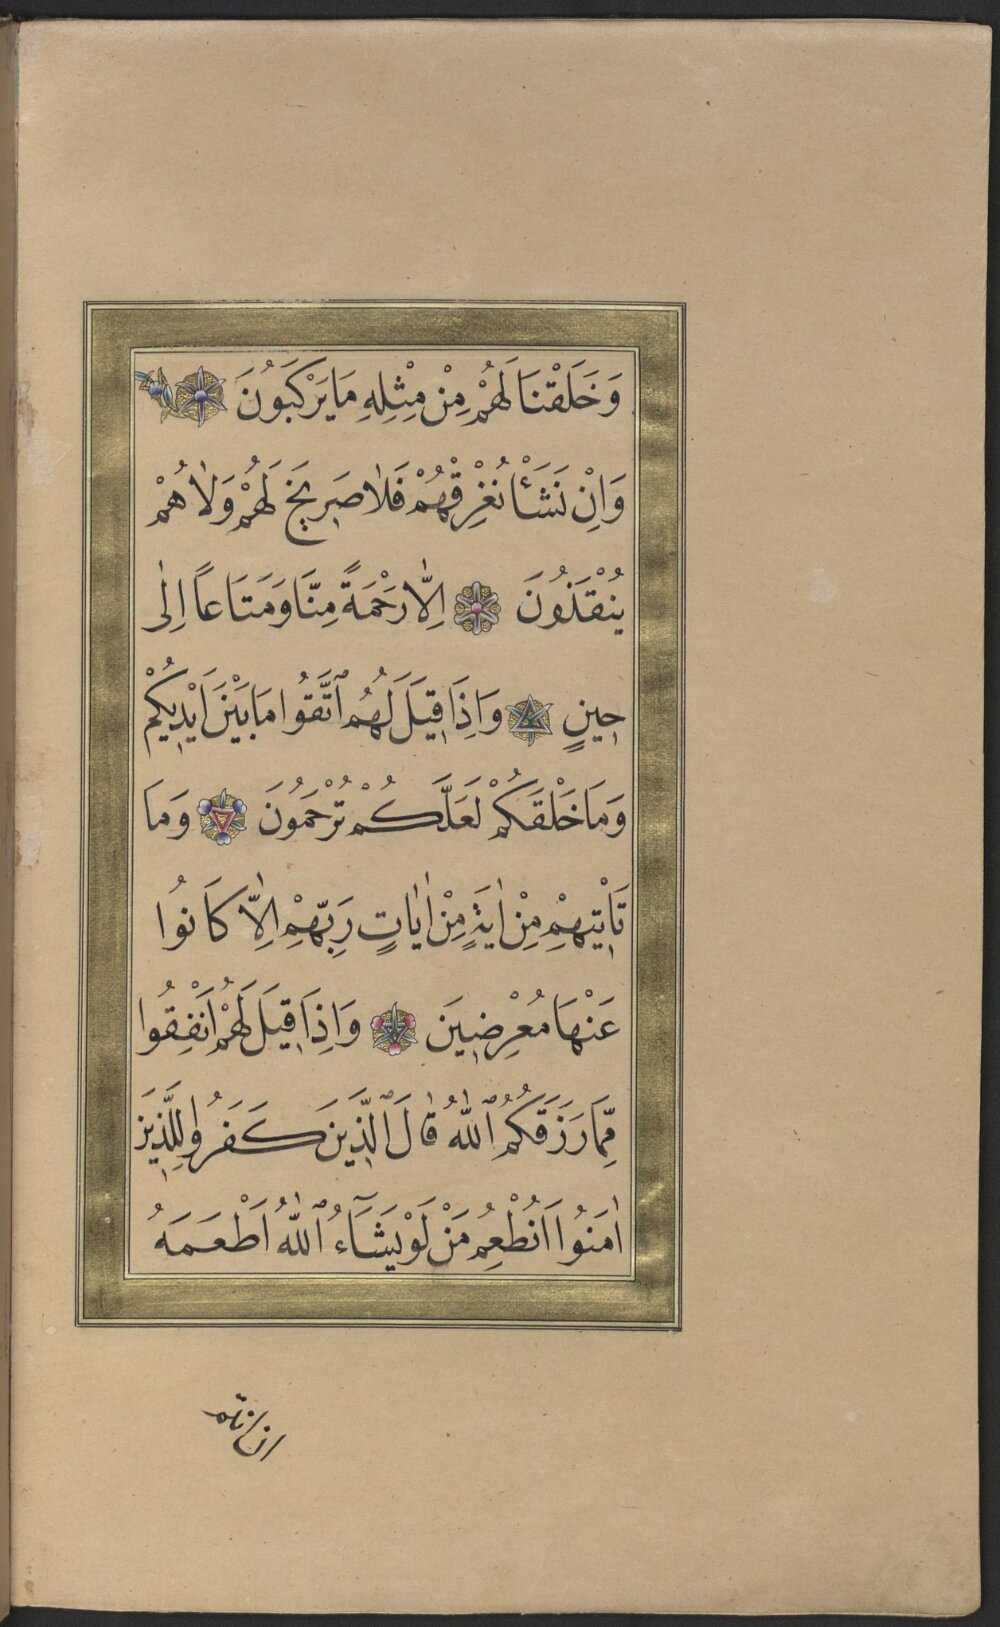 وَخَلَقْنَا لَهُمْ مِنْ مِثْلِهِ مَا يَرْكَبُونَ
وَاِنْ نَشَأْ نُغْرِقْهُمْ فَلَا صَرِيخَ لَهُمْ وَلَا هُمْ
يُنْقَذُونَ اِلَّا رَحْمَةً مِنَّا وَمَتَاعاً اِلٰى
حِينٍ وَاِذَا قِيلَ لَهُمُ ٱتَّقُوا مَا بَيْنَ اَيْدِيكُمْ
وَمَا خَلْفَكُمْ لَعَلَّكُمْ تُرْحَمُونَ وَمَا
تَأْتِيهِمْ مِنْ اٰيَةٍ مِنْ اٰيَاتِ رَبِّهِمْ اِلَّا كَانُوا
عَنْهَا مُعْرِضِينَ وَاِذَا قِيلَ لَهُمْ اَنْفِقُوا
مِمَّا رَزَقَكُمُ ٱللّٰهُ قَالَ ٱلَّذِينَ كَفَرُوا لِلَّذِينَ
اٰمَنُوا اَنُطْعِمُ مَنْ لَوْ يَشَٓاءُ ٱللّٰهُ اَطْعَمَهُ
ان انتم